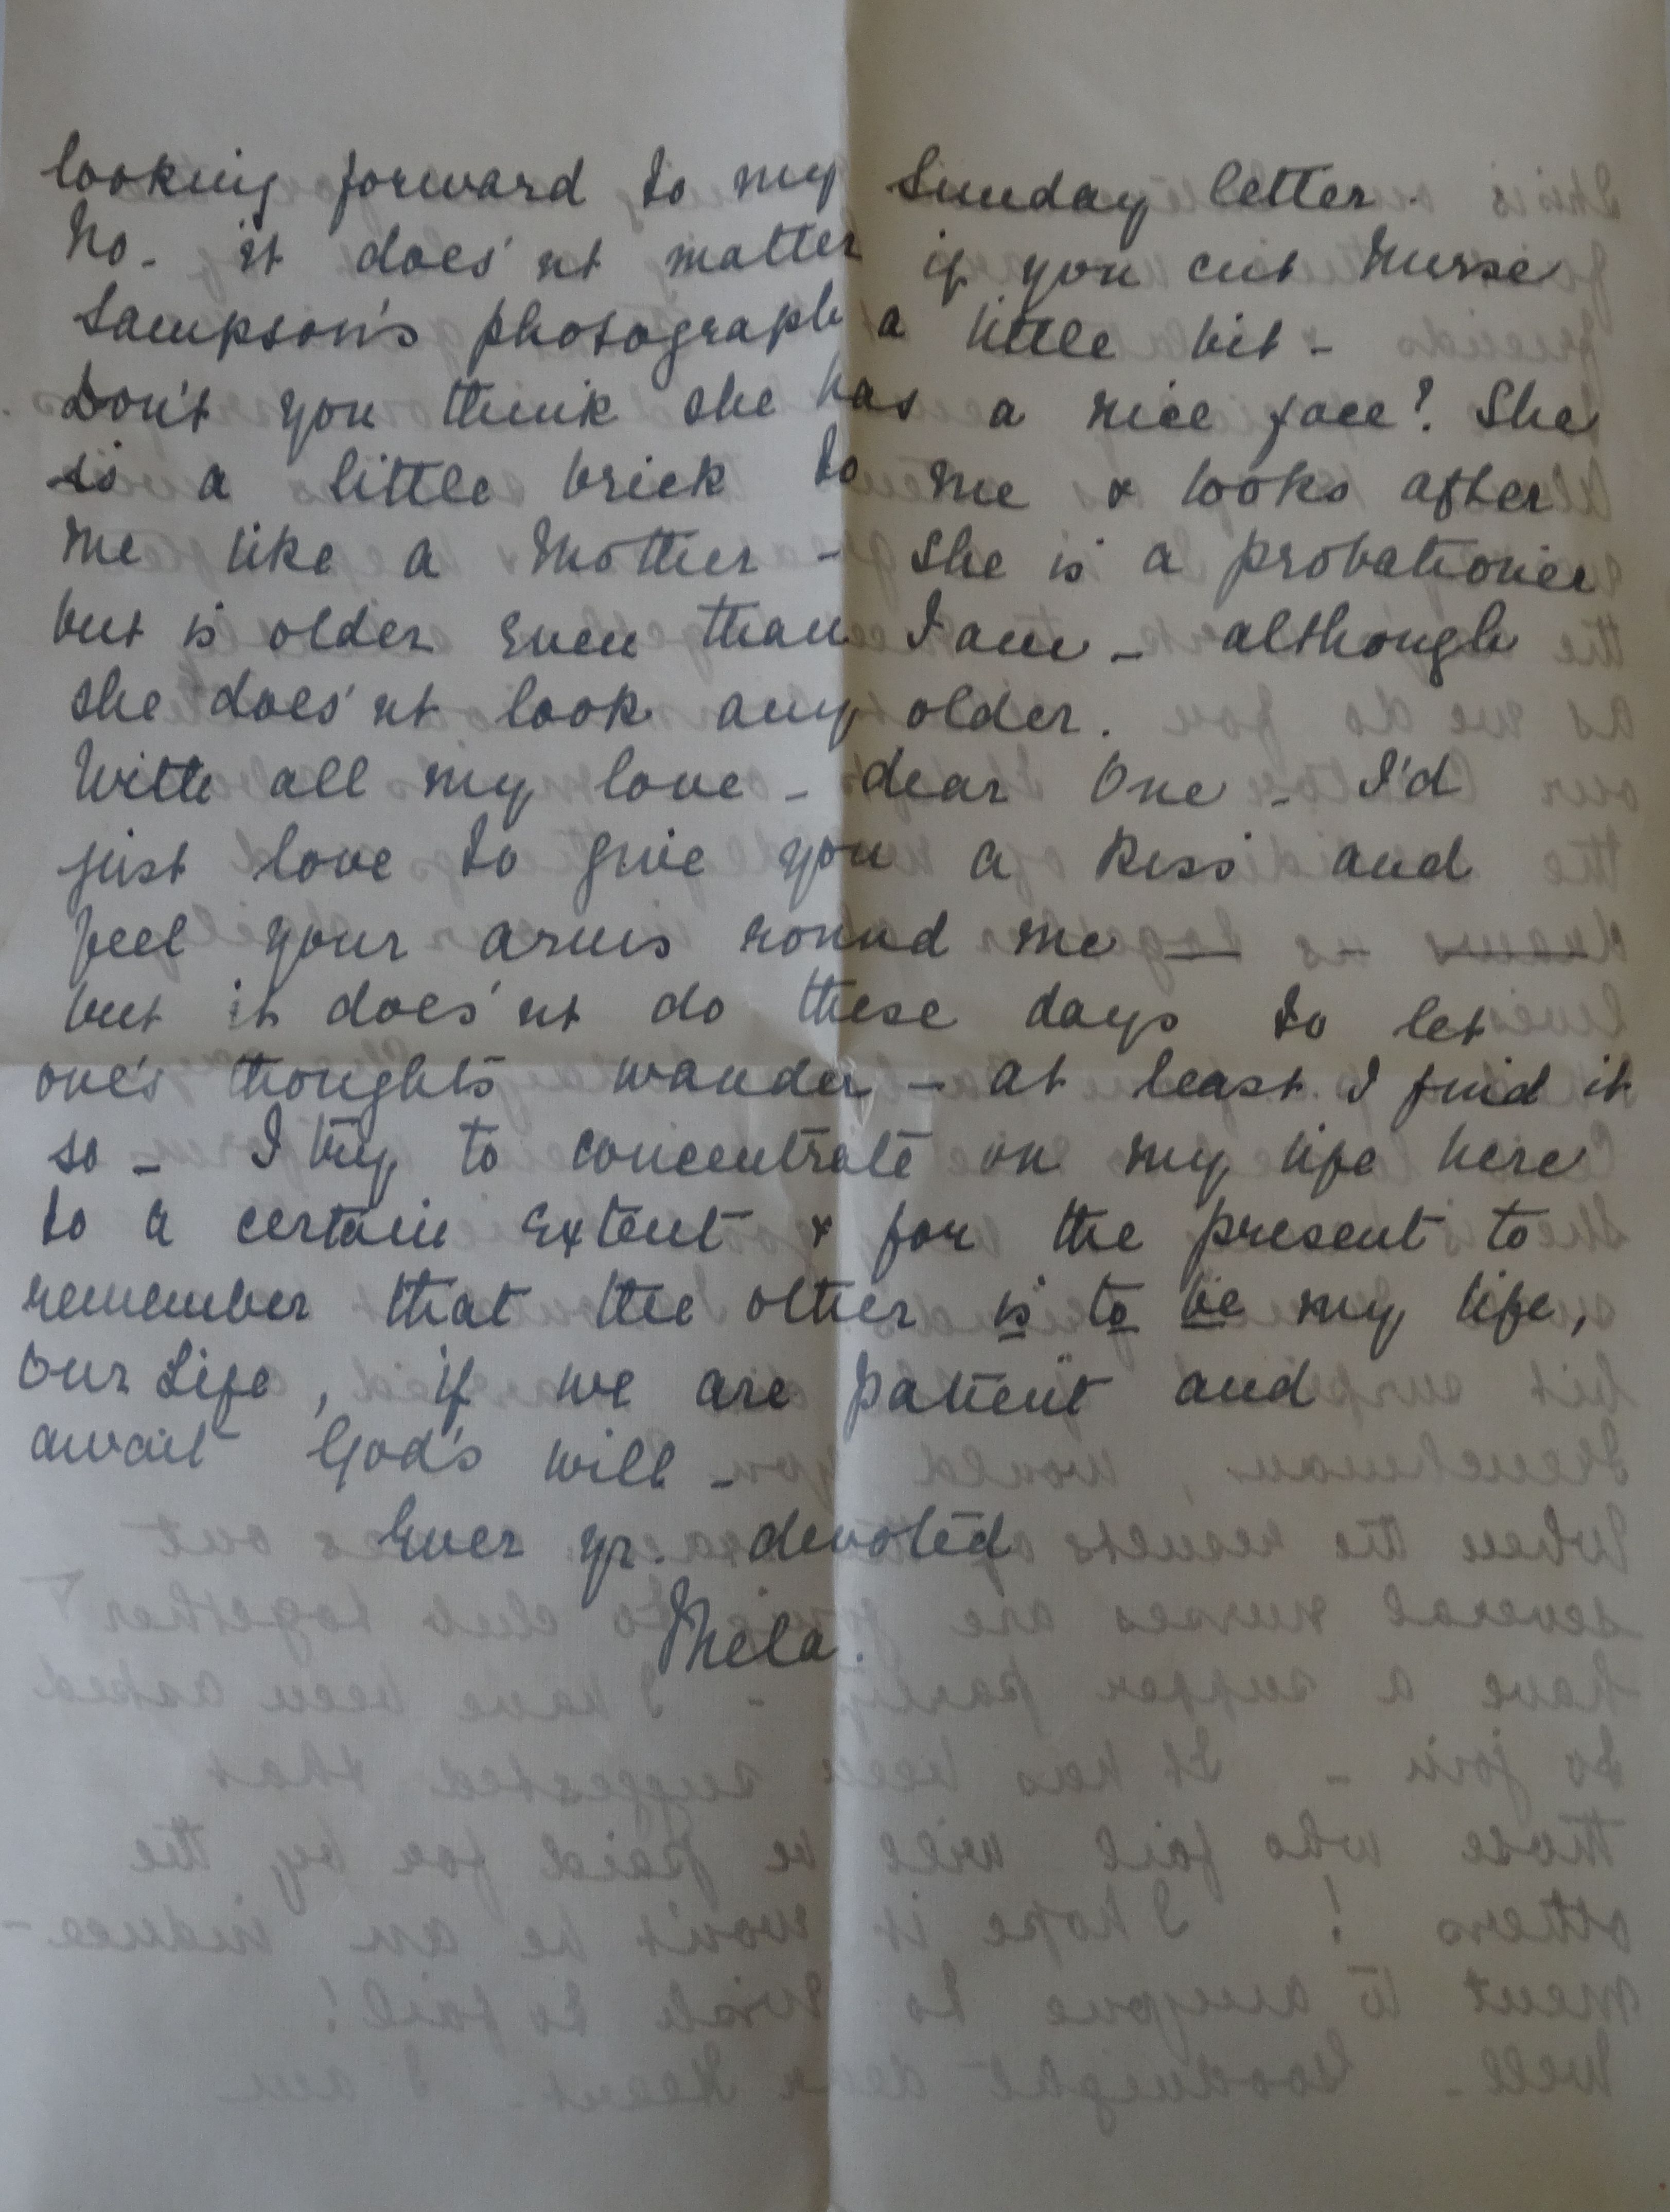 looking forward to my Sunday letter.
No. it does'nt matter if you cut Nurse
Sampson's photograph a little bit -
Don't you think she has a nice face? She
is a little brick to me & looks after
me like a Mother - She is a probationer
but is older even than I am - although
she does'nt look any older.
With all my love - dear One - I'd
just love to give you a kiss and
feel your arms round me — - —
but it does'nt do these days to let
one's thoughts wander - at least I find it
so - I try to concentrate on my life here
to a certain extent & for the present to
remember that the other is to be my life,
Our Life, if we are patient and
await God's will -
Ever yr. devoted
Mela